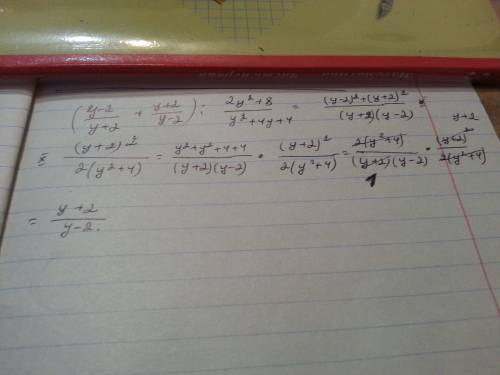 ( y-2/y+2 + y+2/y-2 ) : 2y²+8/y²+4y+4 = (y-2)²+(y+2)²/(y+2)(y-2) ·
× (y+2)²/2(y²+4) = y²+y²+4+4/(y+2)(y-2) · (y+2)²/2(y²+4) = 2(y²+4)/(y+2)(y-2) · (y+2)²/2(y²+4) y+2
1
= y+2/y-2.